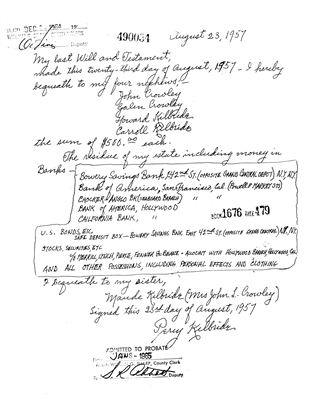 FILED DEC
490034
August 23, 1957
Deputy
My last Will and Testament,
made this twenty-third day of August, 1957 - I hereby
bequeath to my four nephews:-
John Crowley
Galen Crowley
Howard Kilbride
Carroll Kilbride
the sum of $500.00 each.
The residue of my estate including money in
Banks -
Bowery Savings Bank, 42nd St. (opposite Grand Central Depot) N.Y. N.Y.
Bank of America, San Francisco, Cal. (Powell & Market STS)
CROCKER-ANGLO BK
BANK OF AMERICA, HOLLYWOOD
CALIFORNIA BANK, "
BOOK 1676 PAGE 479
U.S. BONDS, ETC.
SAFE DEPOSIT BOX - BOWERY SAVINGS BANK EAST 42nd ST. (OPPOSITE GRAND CENTRAL) N.Y., N.Y.
STOCKS, SECURITIES, ETC
% MERRILL, LYNCH, PIERCE, FENNER & BEANE - ACCOUNT WITH HOLLYWOOD BRANCH, HOLLYWOOD, CAL
AND ALL OTHER POSSESSIONS, INCLUDING PERSONAL EFFECTS AND CLOTHING
I bequeath to my sister,
Maude Kilbride (Mrs John L. Crowley)
Signed this 23rd day of August, 1957
Percy Kilbride
ADMITTED TO PROBATE
JAN 8 - 1965
County Clerk
Deputy